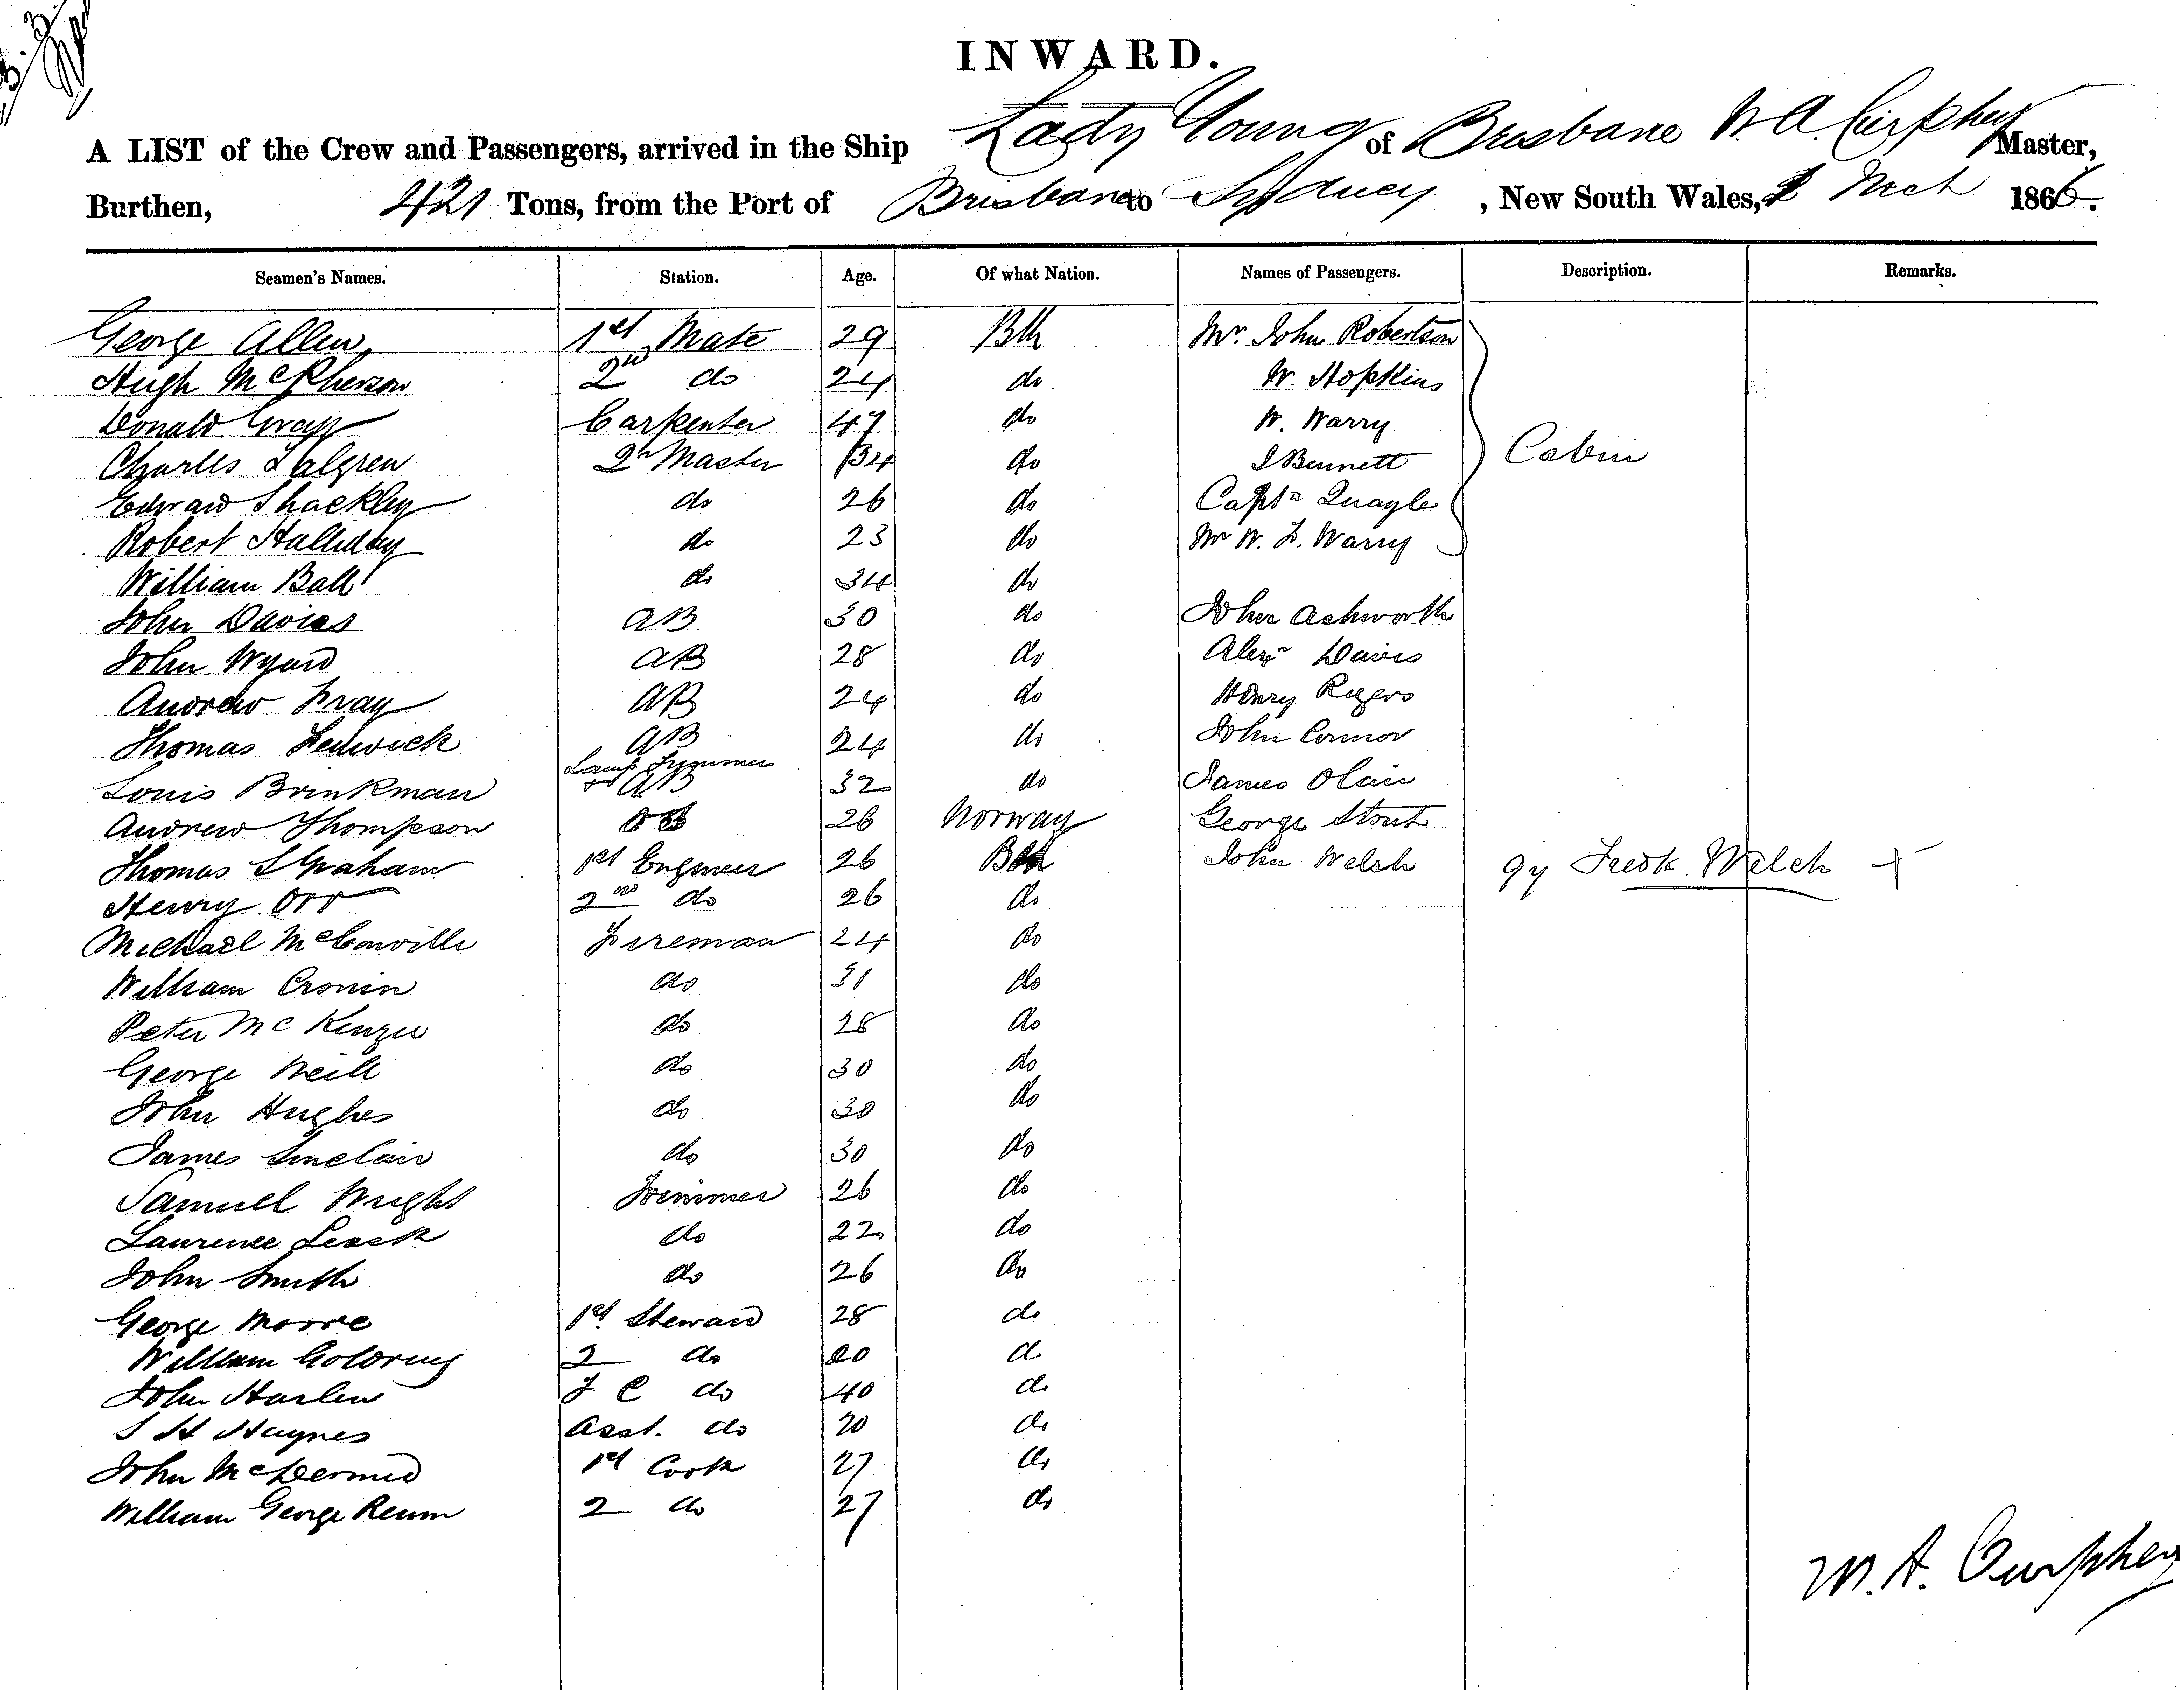 INWARD.
A LIST of the Crew and Passengers, arrived in the Ship Lady Young of Brisbane W A Curphey Master,
Burthen, 421 Tons, from the Port of Brisbane to Sydney, New South Wales, 2 Mch 1866.
Seamen's Names. Station. Age. Of what Nation. Names of Passengers. Description. Remarks.
George Allen 1st Mate 29 Bth Mr. John Robertson
Hugh McPherson 2nd do 24 do W. Hopkins
Donald Gray Carpenter 47 do W. Warry
Charles Dalgren Qr Master 34 do J Bennett Cabin
Edward Shackley do 26 do Captn Quayle
Robert Halliday do 23 do Mr W. L. Warry
William Ball do 34 do
John Davies AB 30 do John Ashworth
John Wyard AB 28 do Alexr Davis
Andrew Gray AB 24 do Henry Rogers
Thomas Fenwick AB 24 do John Connor
Louis Brinkman Lamp Trimmer AB 32 do James Olair
Andrew Thompson 26 Norway George Stout
Thomas S Graham 1st Engineer 26 Bth John Welsh qy Fredk. Welch +
Henry Orr 2nd do 26 do
Michael McConville Fireman 24 do
William Cronin do 31 do
Peter McKenzie do 28 do
George Neill do 30 do
John Hughes do 30 do
James Sinclair do 30 do
Samuel Wright Trimmer 26 do
Laurence Leask do 22 do
John Smith do 26 do
George Moore 1st Steward 28 do
William Goldring 2 do 20 d
John Harlen F C do 40 do
S H Haynes Asst. do 20 do
John McDermid 1st Cook 27 do
William George Renm 2 do 27 do
W. A. Curphey